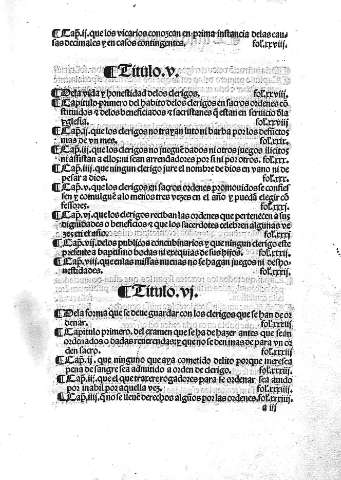 ¶ Cap. ij. que los vicarios conozcan en prima instancia de las causas decimales y en casos contingentes. fol. xxviij.
¶ Titulo. v.
¶ De la vida y honestidad de los clerigos. fol. xxviij.
¶ Capitulo primero del habito de los clerigos en sacros ordenes cõ
stituidos ⁊ de los beneficiados ⁊ sacristanes q̃ estan en seruicio d̃ la
yglesia. fol. xxviij.
¶ Cap. ij. que los clerigos no trayan luto ni barba por los defũctos
mas de vn mes. fol. xxix.
¶ Cap. iij. que los clerigos no juegũ dados ni otros juegos illicitos
ni assistan a ellos; ni sean arrendadores por si ni por otros. fol. xxx.
¶ Cap. iiij. que ningun clerigo jure el nombre de dios en vano ni de
pesar a dios. fol. xxx.
¶ Cap. v. que los clerigos en sacros ordenes promouidos se confies
sen y comulguẽ a lo menos tres vezes en el año y puedã elegir cõ
fessores. fol. xxxj.
¶ Cap. vj. que los clerigos reciban las ordenes que pertenecen a sus
dignidades o beneficios ⁊ que los sacerdotes celebren algunas ve
zes en el año. fol. xxxj.
¶ Cap. vij. de los publicos concubinarios y que ningun clerigo este
presente a baptismo bodas ni exequias de sus hijos. fol. xxxij.
¶ Cap. viij. que en las missas nueuas no se hagan juegos ni desho
nestidades. fol. xxxij.
¶ Titulo. vj.
¶ De la forma que se deue guardar con los clerigos que se han de or
denar. fol. xxxiij.
¶ Capitulo primero. del examen que se ha de hazer antes que sean
ordenados o dadas reuerendas; y que no se den mas de para vn or
den sacro. fol. xxxiij.
¶ Cap. ij. que ninguno que aya cometido delito porque meresca
pena de sangre sea admitido a orden de clerigo. fol. xxxiij.
¶ Cap. iij. que el que traxere rogadores para se ordenar sea auido
por inabil por aquella vez. fol. xxxiij.
¶ Cap. iiij. q̃ no se lleuẽ derechos algũos por las ordenes. fol. xxxiiij.
a iij